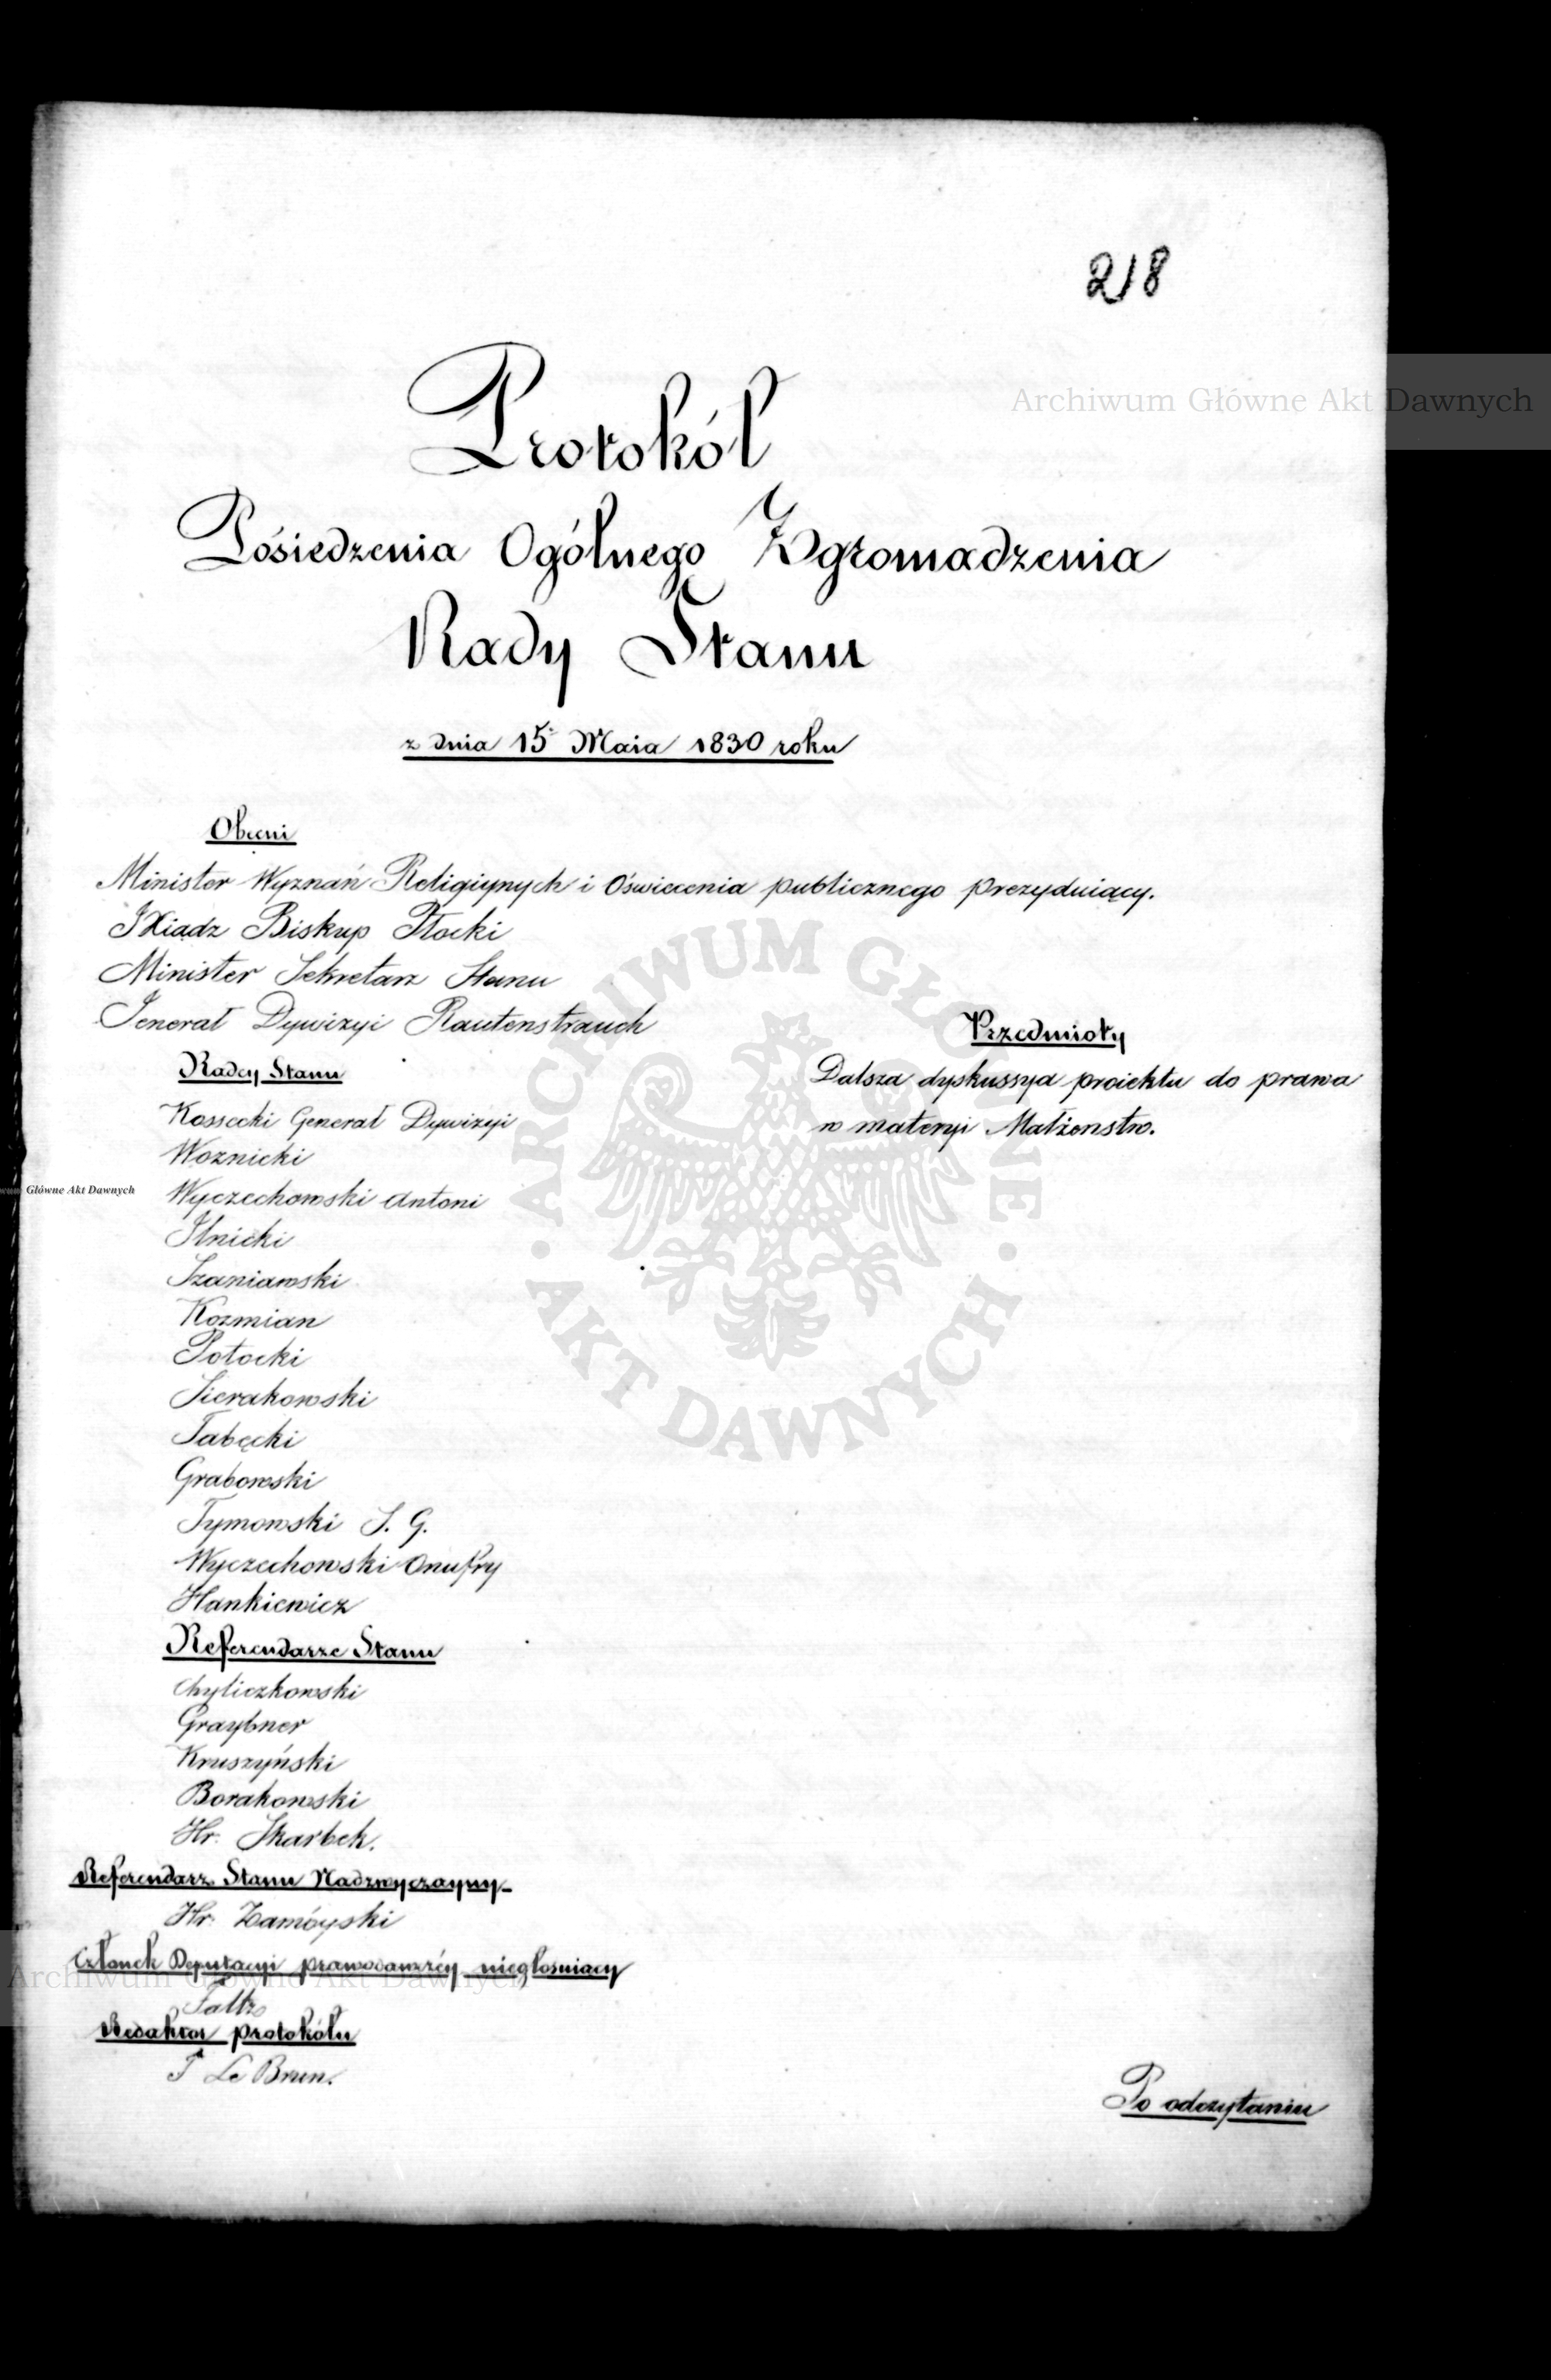 218
Protokół
Pósiedzenia Ogólnego Zgromadzenia
Rady Stanu
z dnia 15 Maia 1830 roku
Obecni
Minister Wyznań Religiynych i Oświecenia publicznego prezyduiący.
JXiądz Biskup Płocki
Minister Sekretarz Stanu
Jenerał Dywizyi Rautenstrauch
Radcy Stanu
Kossecki Generał Dywizyi
Woznicki
Wyczechowski Antoni
Ilnicki
Szaniawski
Kozmian
Potocki
Sierakowski
Tabęcki
Grabowski
Tymowski S. G.
Wyczechowski Onufry
Hankiewicz
Referendarze Stanu
Chyliczkowski
Graybner
Kruszyński
Borakowski
Hr. Skarbek.
Referendarz Stanu Nadzwyczayny
Hr. Zamóyski
Członek Deputacyi prawodawczéy niegłosuiący
Faltz
Redaktor protokółu
F Le Brun.
Przedmioty
Dalsza dyskussya proiektu do prawa
w materyi Małżenstw.
Po odczytaniu
Archiwum Główne Akt Dawnych
Główne Akt Dawnych
Archiwum Główne Akt Dawnych
ARCHIWUM GŁÓWNE · AKT DAWNYCH ·